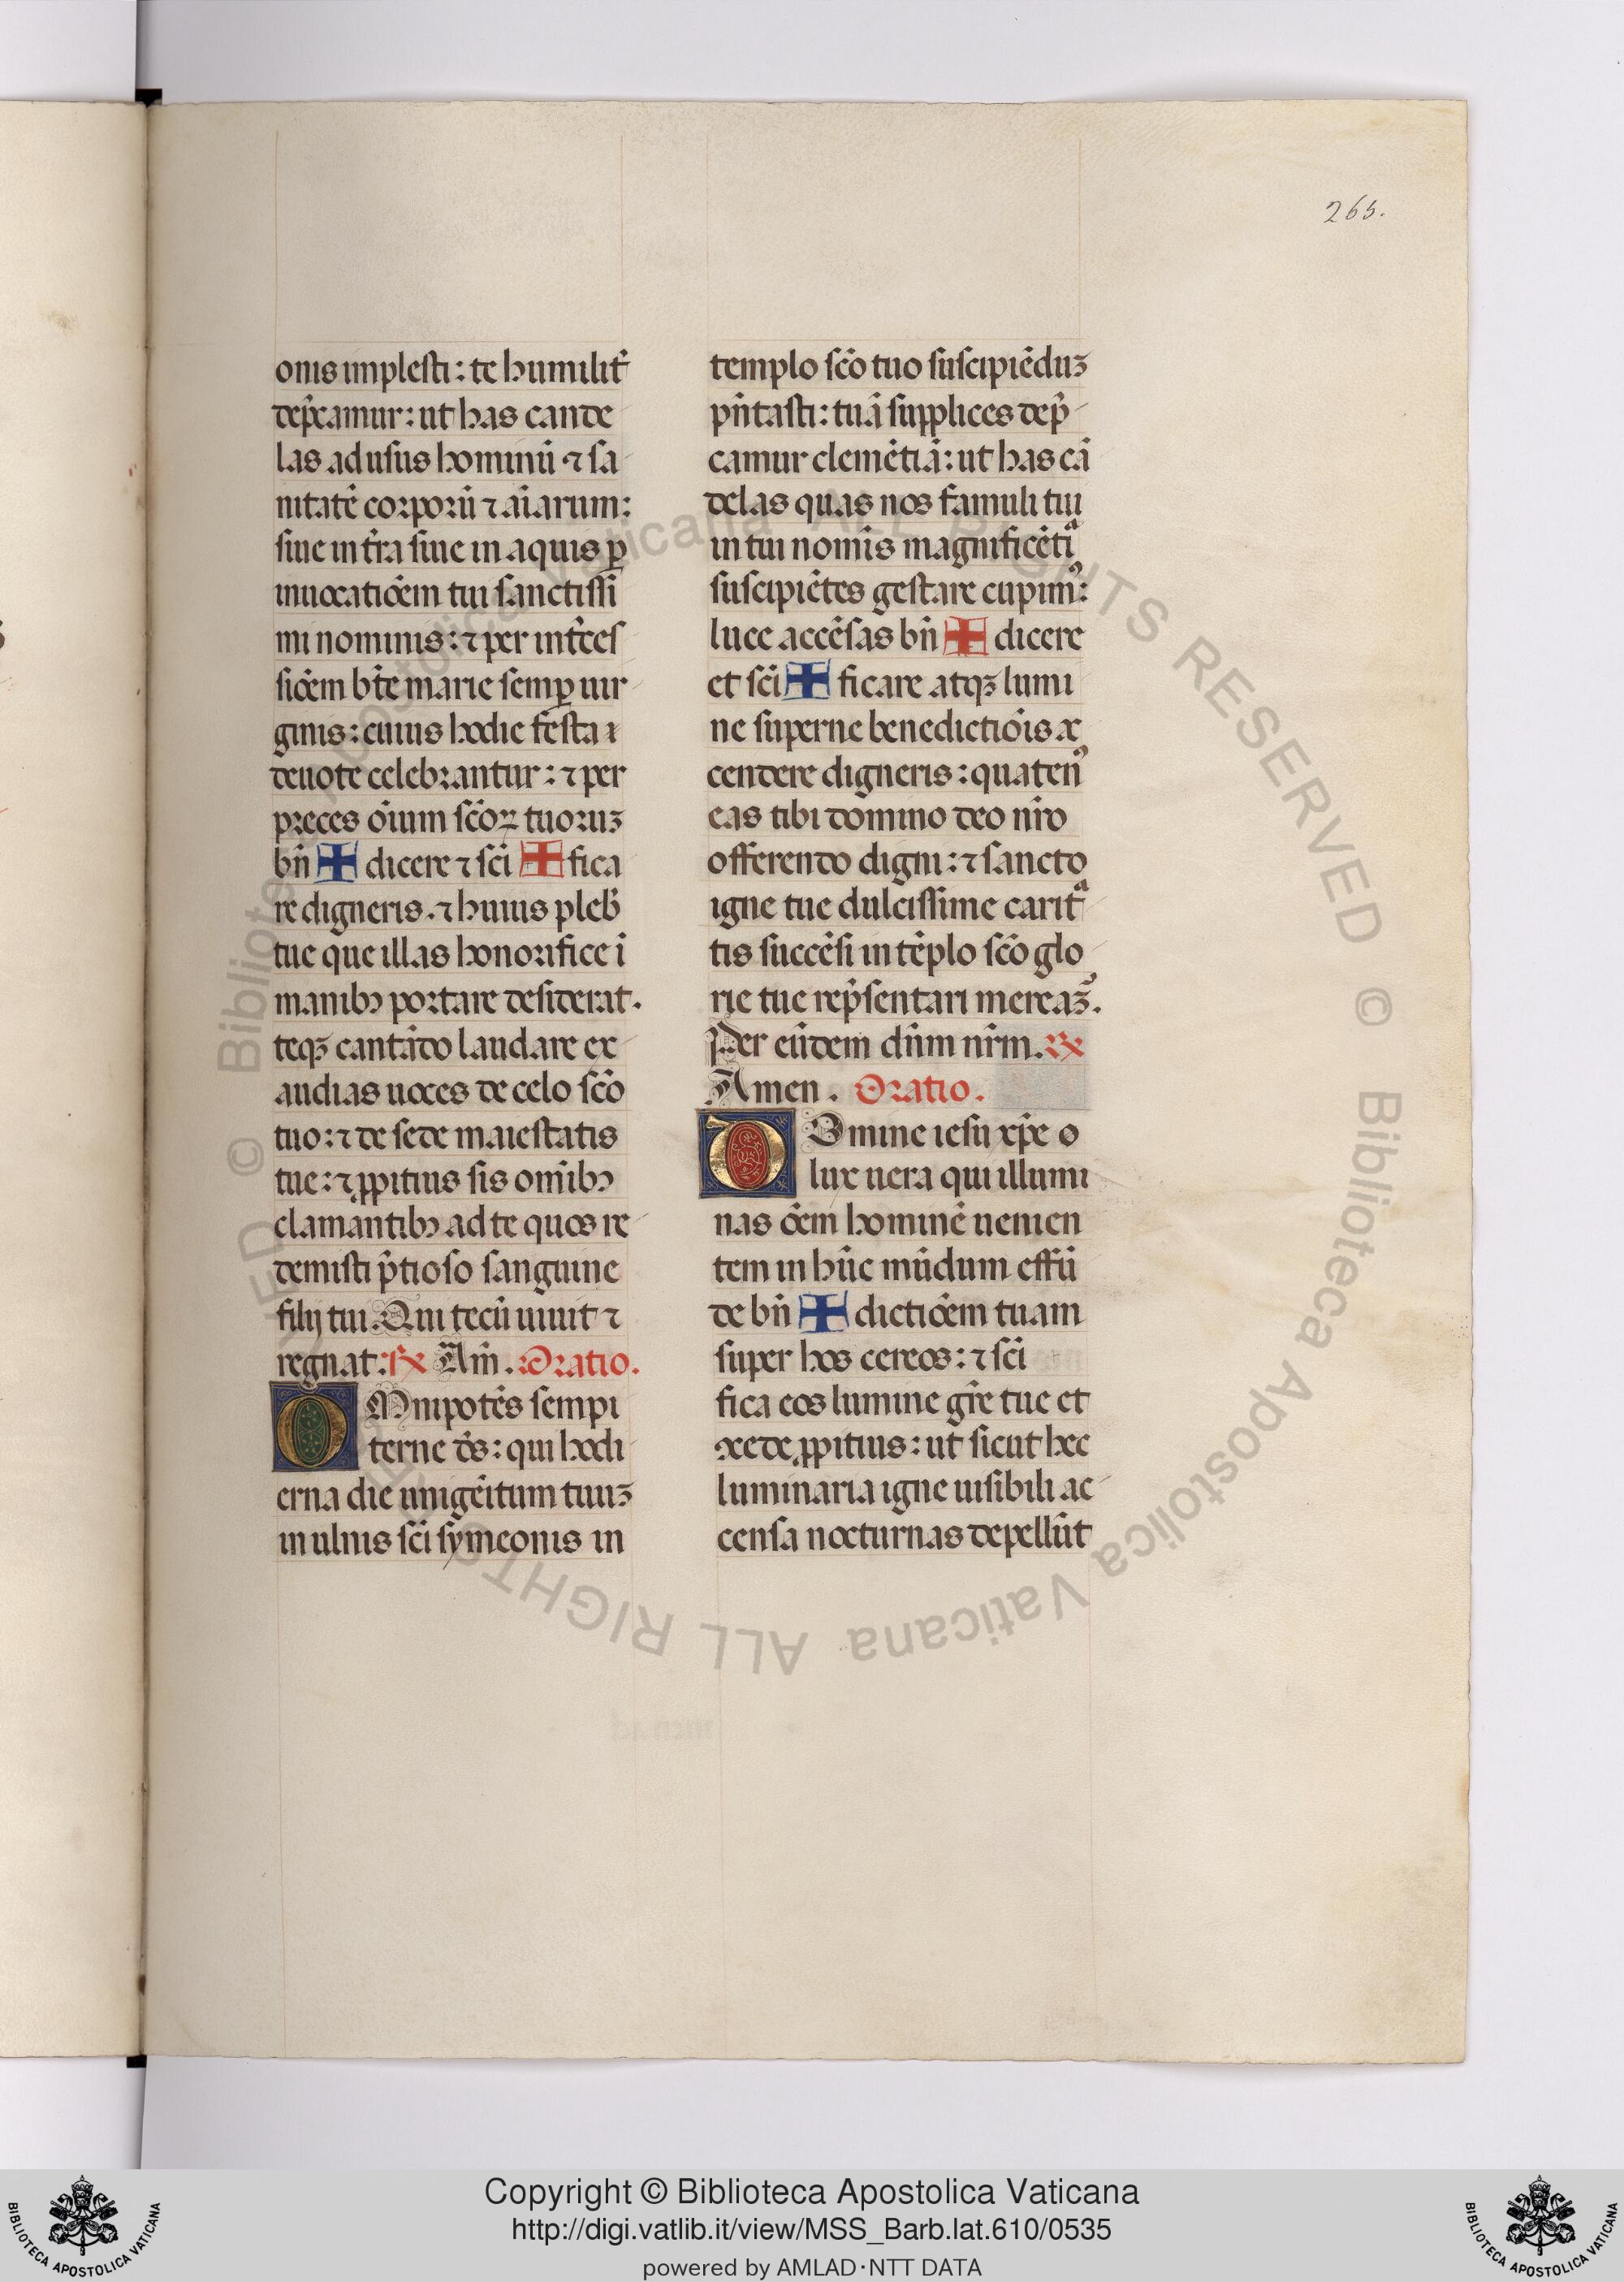 265.
onis implesti: te humilit᷑
dep̄camur: ut has cande
las ad usus hominū ⁊ sa
nitatē corporū ⁊ aīarum:
siue in t᷑ra siue in aquis ꝑ
inuocatiōem tui sanctissi
mi nominis: ⁊ per int᷑ces
siōem bt̄e marie semꝑ uir
ginis: cuius hodie festa
deuote celebrantur: ⁊ per
preces oīum scōꝝ tuoruꝫ
bn̄ ✚ dicere ⁊ scī ✚ fica
re digneris. ⁊ huius pleb᷑
tue que illas honorifice ī
manibꝰ portare desiderat.
teqꝫ cantādo laudare ex
audias uoces de celo scō
tuo: ⁊ de sede maiestatis
tue: ⁊ ꝓpitius sis omībꝰ
clamantibꝰ ad te quos re
demisti p̄tioso sanguine
filij tui. Qui tecū uiuit ⁊
regnat: ℞ Am̄. Oratio.
OMnipotēs sempi
terne ds̄: qui hodi
erna die unigēitum tuuꝫ
in ulnis scī symeonis in
templo scō tuo suscipiēduꝫ
pn̄tasti: tuā supplices dep̄
camur clemētiā: ut has cā
delas quas nos famuli tui
in tui nomīs magnificētiͣ
suscipiētes gestare cupimꝰ:
luce accēsas bn̄ ✚ dicere
et scī ✚ ficare atqꝫ lumi
ne superne benedictiōis ac
cendere digneris: quatenꝰ
eas tibi domino deo nr̄o
offerendo digni: ⁊ sancto
igne tue dulcissime caritͣ
tis succēsi in tēplo scō glo
rie tue rep̄sentari mereaꝫ᷑.
Per eūdem dn̄m nr̄m. ℞
Amen. Oratio.
DOmine iesu xp̄e
lux uera qui illumi
nas ōem hominē uenien
tem in hūc mūdum effū
de bn̄ ✚ dictiōem tuam
super hos cereos: ⁊ scī
fica eos lumine gr̄e tue et
ꝯcede ꝓpitius: ut sicut hec
luminaria igne uisibili ac
censa nocturnas depellūt
Copyright © Biblioteca Apostolica Vaticana
http://digi.vatlib.it/view/MSS_Barb.lat.610/0535
powered by AMLAD·NTT DATA
BIBLIOTECA APOSTOLICA VATICANA
BIBLIOTECA APOSTOLICA VATICANA
© Biblioteca Apostolica Vaticana ALL RIGHTS RESERVED
© Biblioteca Apostolica Vaticana ALL RIGHTS RESERVED